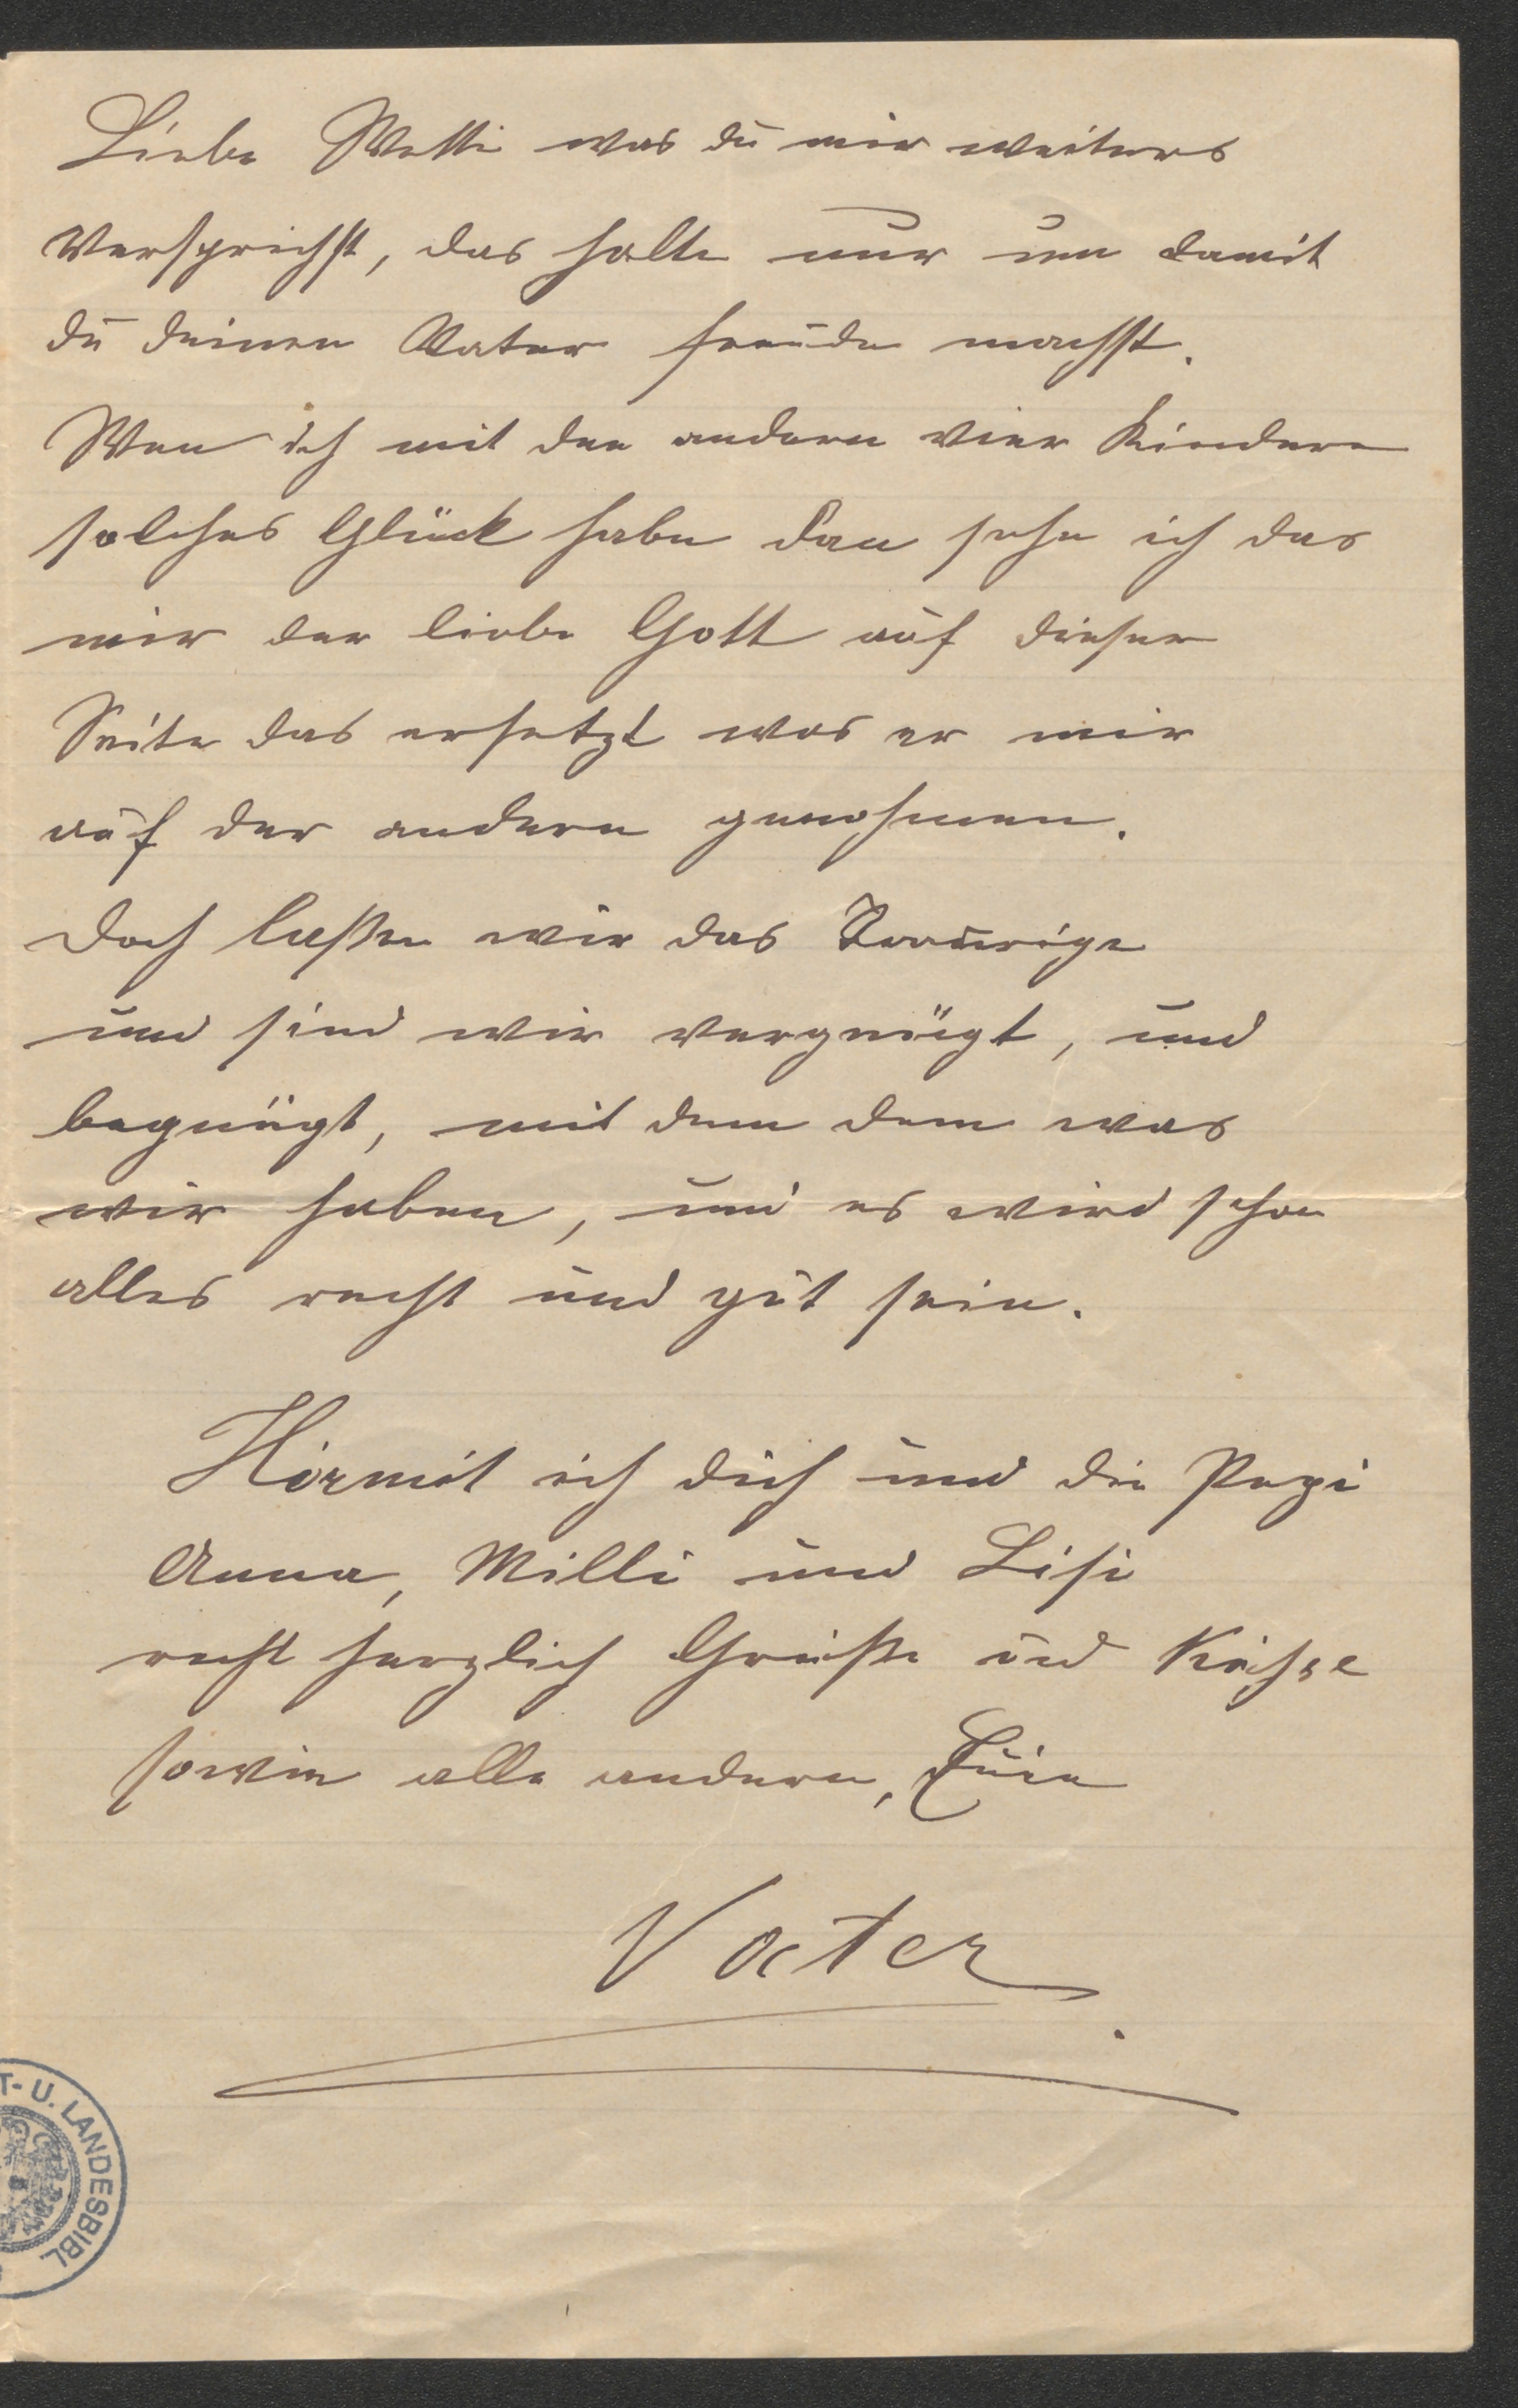 Liebe Wetti was du mir weiters
Versprichst, das halte nur um damit
du deinen Vater freude machst.
Wen ich mit den andern vier Kindern
solches Glück habe dan sehe ich das
mir der liebe Gott auf dieser
Seite das ersetzt was er mir
auf der andern genohmen.
Doch laßen wir das Traurige
und sind wir vergnügt, und
begnügt, mit dem dem was
wir haben, und es wird schon
alles recht und gut sein.
Hirmit ich dich und die Pepi
Anna, Milli und Lisi
recht herzlich Grüße und Küsse
sowie alle andern, Euer
Vater.
T- U. LANDESBIBL.